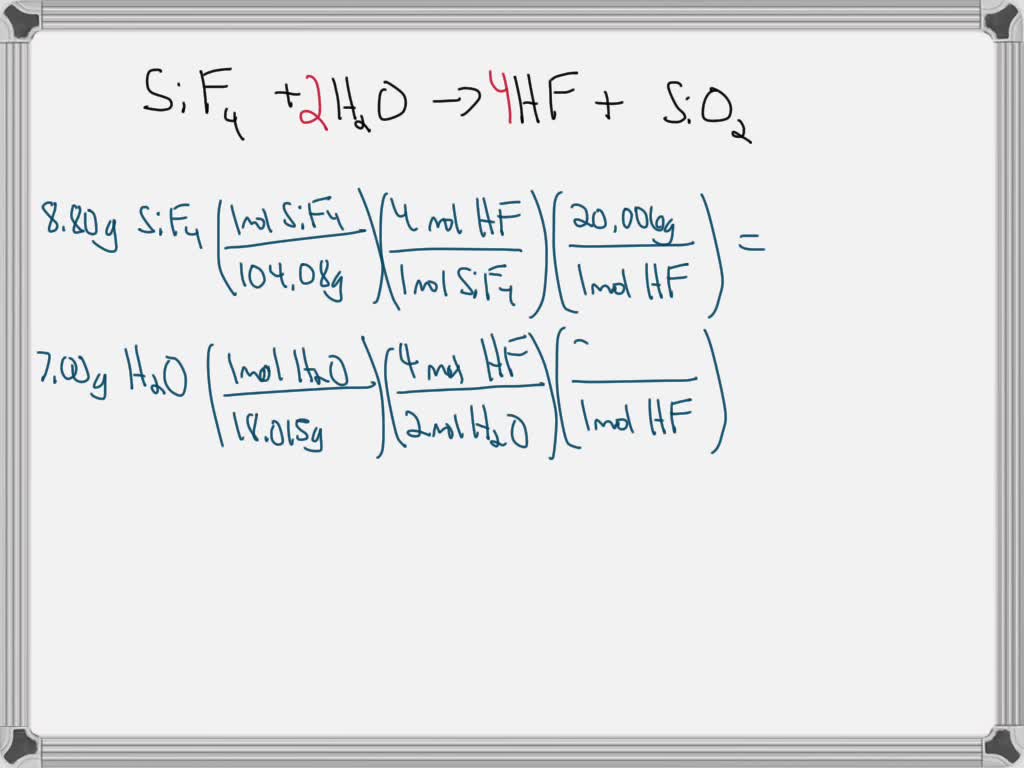 SiF₄ + 2H₂O → 4HF + SiO₂
8.80g SiF₄ (1mol SiF₄ / 104.08g)(4 mol HF / 1mol SiF₄)(20.006g / 1mol HF) =
7.00g H₂O (1mol H₂O / 18.015g)(4 mol HF / 2mol H₂O)( / 1mol HF)